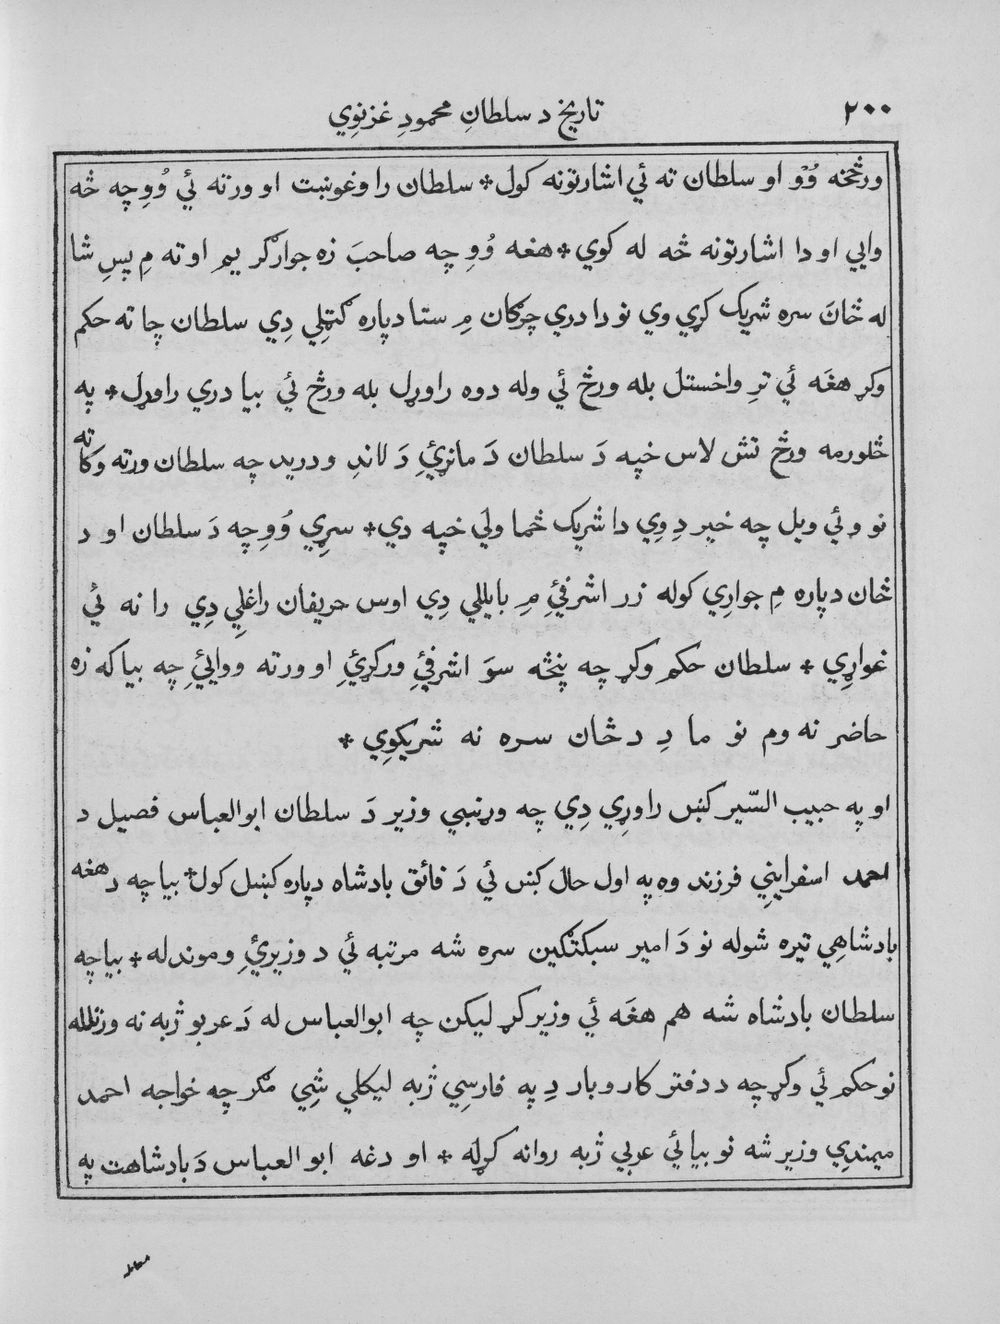 ٢٠٠
تاريخ د سلطانِ محمودِ غزنوِي
ورڅخه وُوْ او سلطان ته ئي اشارتونه کول * سلطان را وغوښت او ورته ئي وُوِ چه څه
وايي او دا اشارتونه څه له کوي * هغه وُوِ چه صاحبَ زه جوارګر يم او ته مِ پسِ شا
له ځانَ سره شريک کړي وي نو دا دري چرګان مِ ستا دپاره ګټلِي دِي سلطان چا ته حکم
وکړ هغَه ئي ترِ واخستل بله ورځ ئي وله دوه راوړل بله ورځ ئي بيا دري راوړل * په
څلورمه ورځ تش لاس خپه دَ سلطان دَ مانړيِ دَ لاندِ ودريد چه سلطان ورته وکاته
نو وئي ويل چه خير دِ وِي دا شريک څما ولي خپه دي * سړِي وُوِ چه دَ سلطان او د
ځان دپاره مِ جوارِي کوله زر اشرفيِ مِ بايللي دِي اوس حريفان راغلِي دِي را نه ئي
غواړِي * سلطان حکم وکړ چه پنځه سوَ اشرفيِ ورکړيِ او ورته ووايِ چه بيا که زه
حاضر نه وم نو ما دِ د ځان سره نه شريکوِي *
او په حبيب السّير کښ راوړِي دِي چه وړنبي وزير دَ سلطان ابوالعباس فصيل د
احمد اسفراينِي فرزند وه په اول حال کښ ئي دَ فائق بادشاه دپاره کښل کول * بيا چه د هغه
بادشاهِي تيره شوله نو دَ امير سبکتګين سره شه مرتبه ئي د وزيريِ وموندله * بيا چه
سلطان بادشاه شه هم هغَه ئي وزير کړ ليکن چه ابوالعباس له دَ عربو ژبه نه ورتلله
نو حکم ئي وکړ چه د دفتر کار و بار دِ په فارسِي ژبه ليکلي شِي مګر چه خواجه احمد
ميمندِي وزير شه نو بيا ئي عربي ژبه روانه کړلَه * او دغه ابو العباس دَ بادشاهت په